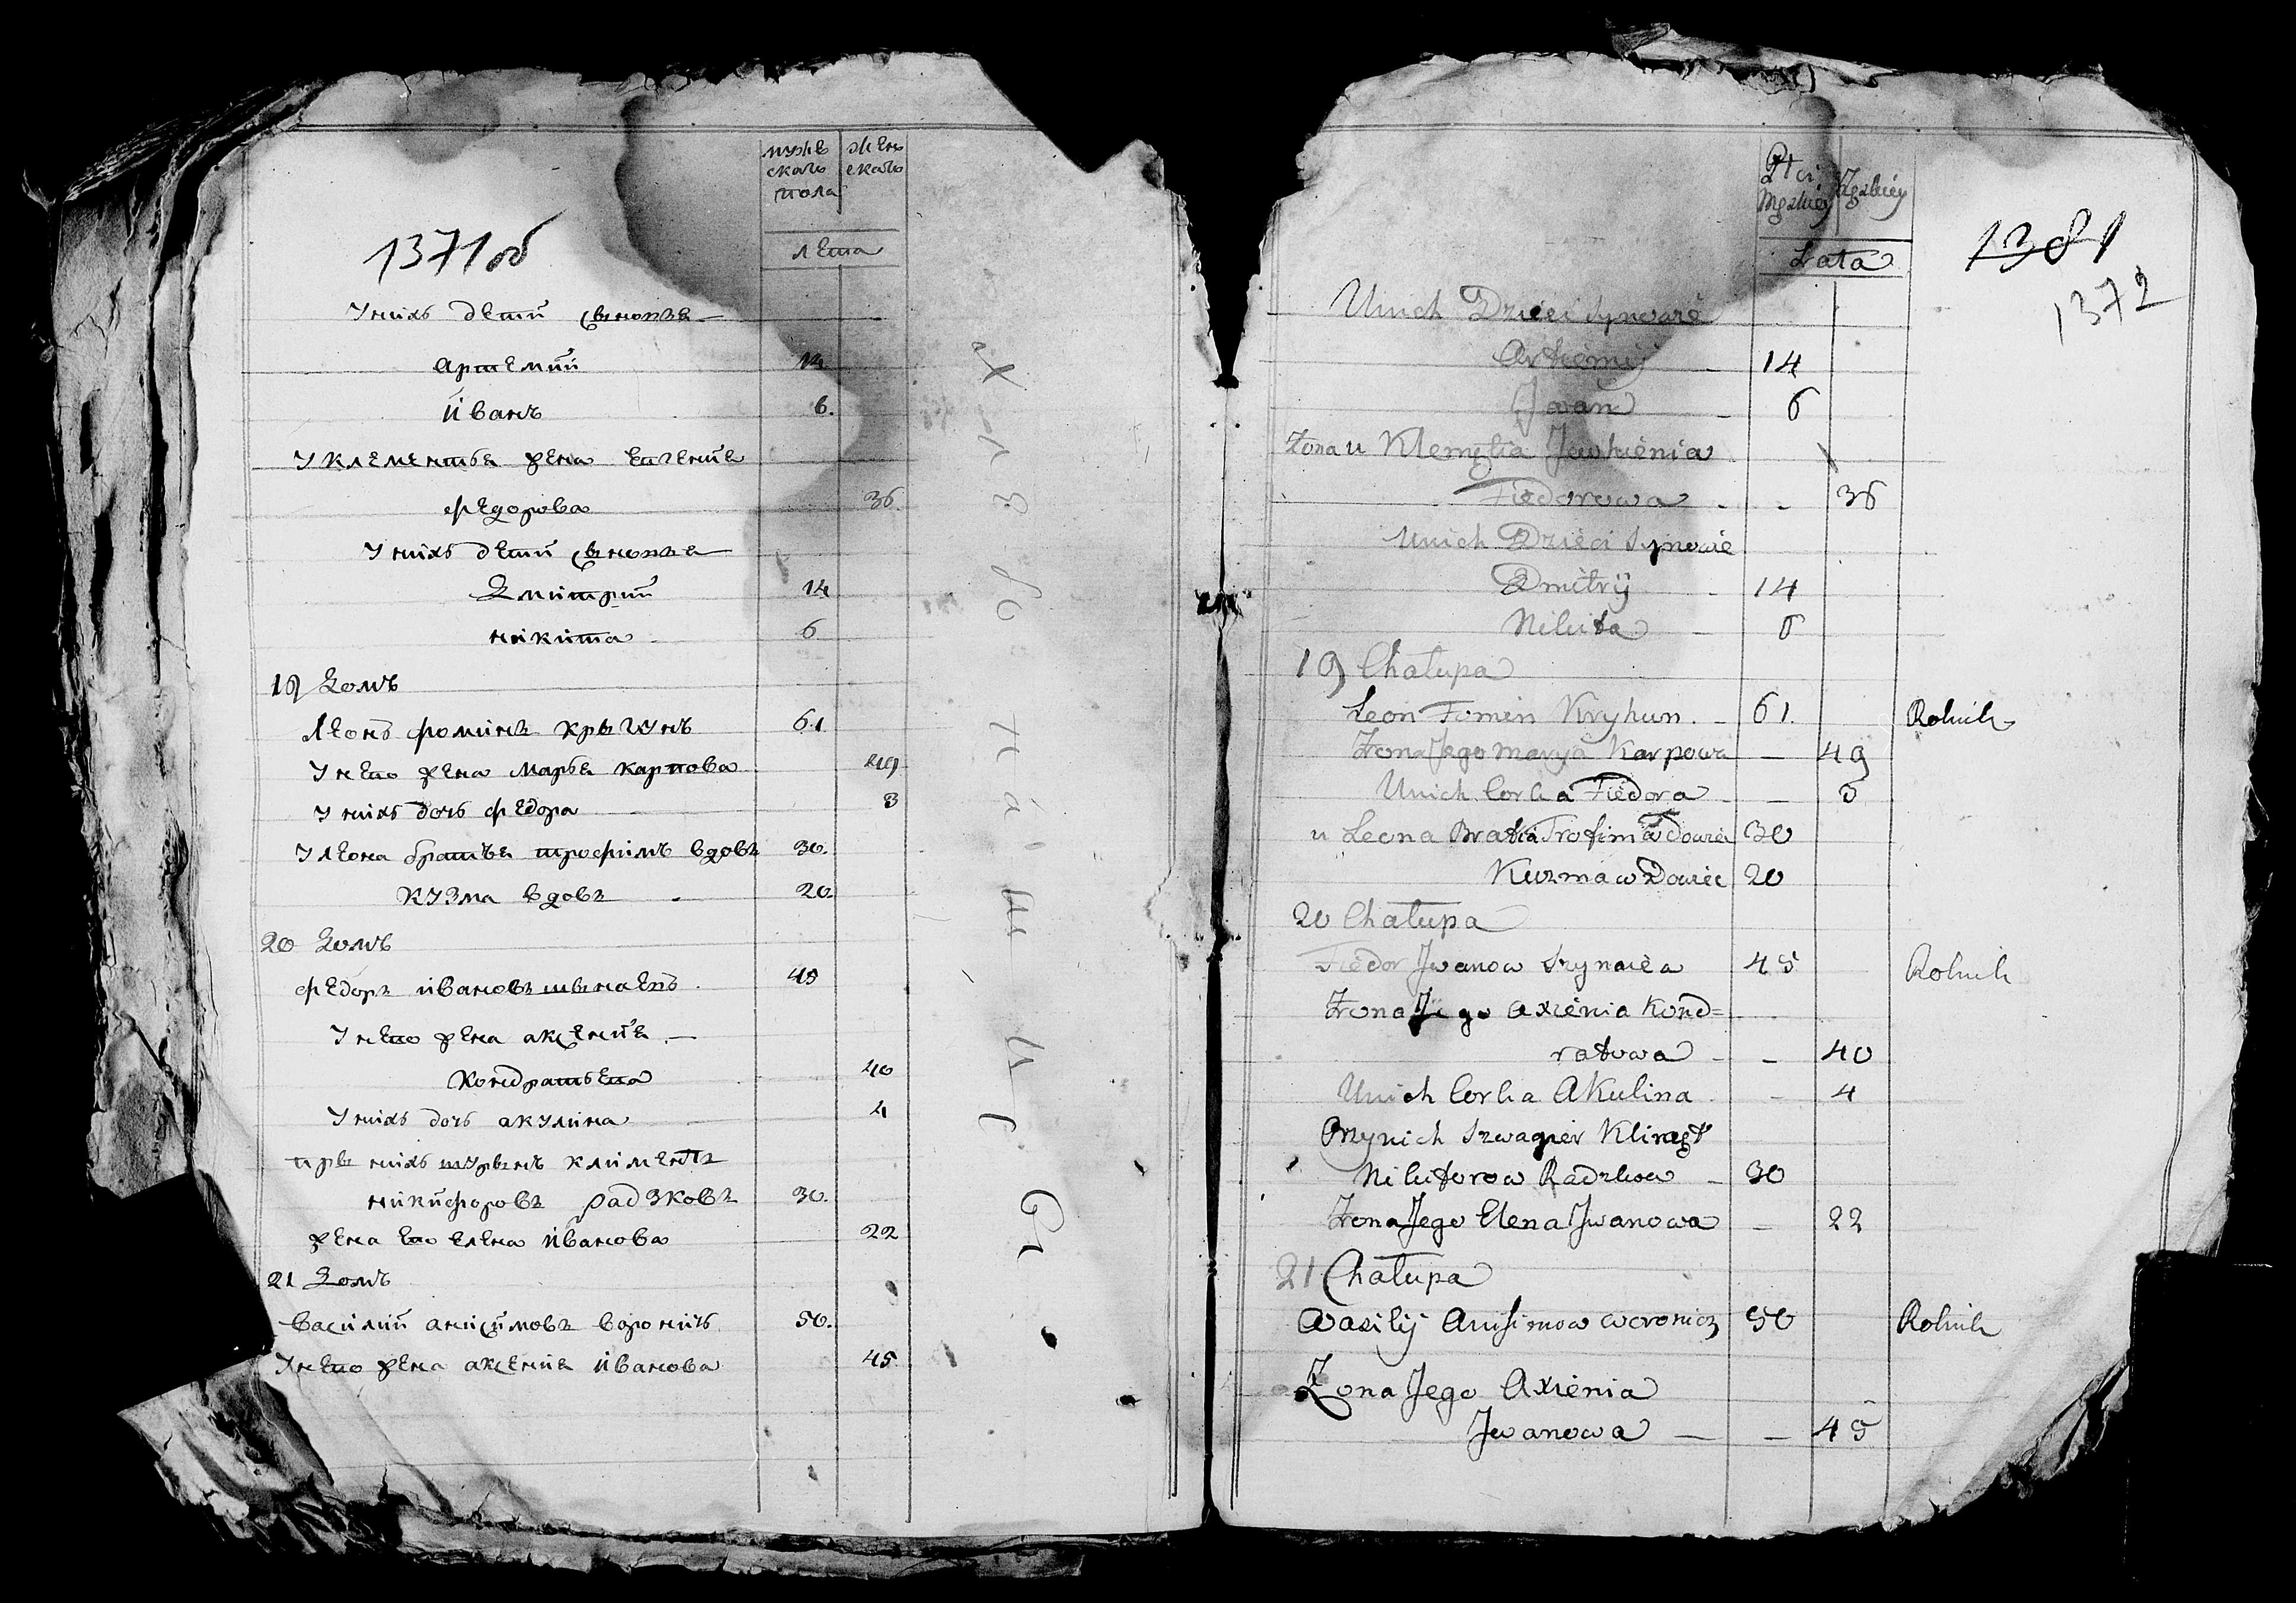 мужескаго пола
женскаго
лета
1371 об
У нихъ дети сыновья
Артемий 14
Иванъ 6.
У Клементья жена Евгения
Федорова 36.
У нихъ дети сыновья
Дмитрий 14
Никита 6
19 Домъ
Леонъ Фоминъ Крыгунъ 61
У него жена Марья Карпова 49
У нихъ дочь Федора 3
У Леона братья Трофимъ вдовъ 30.
Кузма вдовъ 20.
20 Домъ
Федоръ Ивановъ 45
У него жена Аксения
Кондратьева 40
У нихъ дочь Акулина 4
при нихъ шурынъ Климентъ
Никифоровъ Радзковъ 30.
жена его Елена Иванова 22
21 Домъ
Василий Анисимовъ Воро​ничъ 50.
У него жена Аксения Иванова 45.
Płci Męzkiey
Żęzkiey
Lata
1381
1372
U nich Dzieci Synowie
Artiemij 14
Jwan 6
Żona u Klemętia Jewhienia
Fiedorowa 36
U nich Dzieci Synowie
Dmitrij 14
Nikita 6
19 Chałupa
Leon Fomin Kryhun 61 Rolnik
Żona Jego Marya Karpowa 49
U nich Corka Fiedora 3
u Leona Bratia Trofim wdowiec 30
Kuzma wdowiec 20
20 Chałupa
Fiedor Jwanow 45 Rolnik
Żona Jego Axienia Kond=
ratowa 40
U nich Corka Akulina 4
Przy nich Szwagier Klimęt
Nikiforow Radzkow 30
Żona Jego Elena Jwanowa 22
21 Chałupa
Wasilij Anisimow Woronicz 50 Rolnik
Żona Jego Axienia
Jwanowa 45